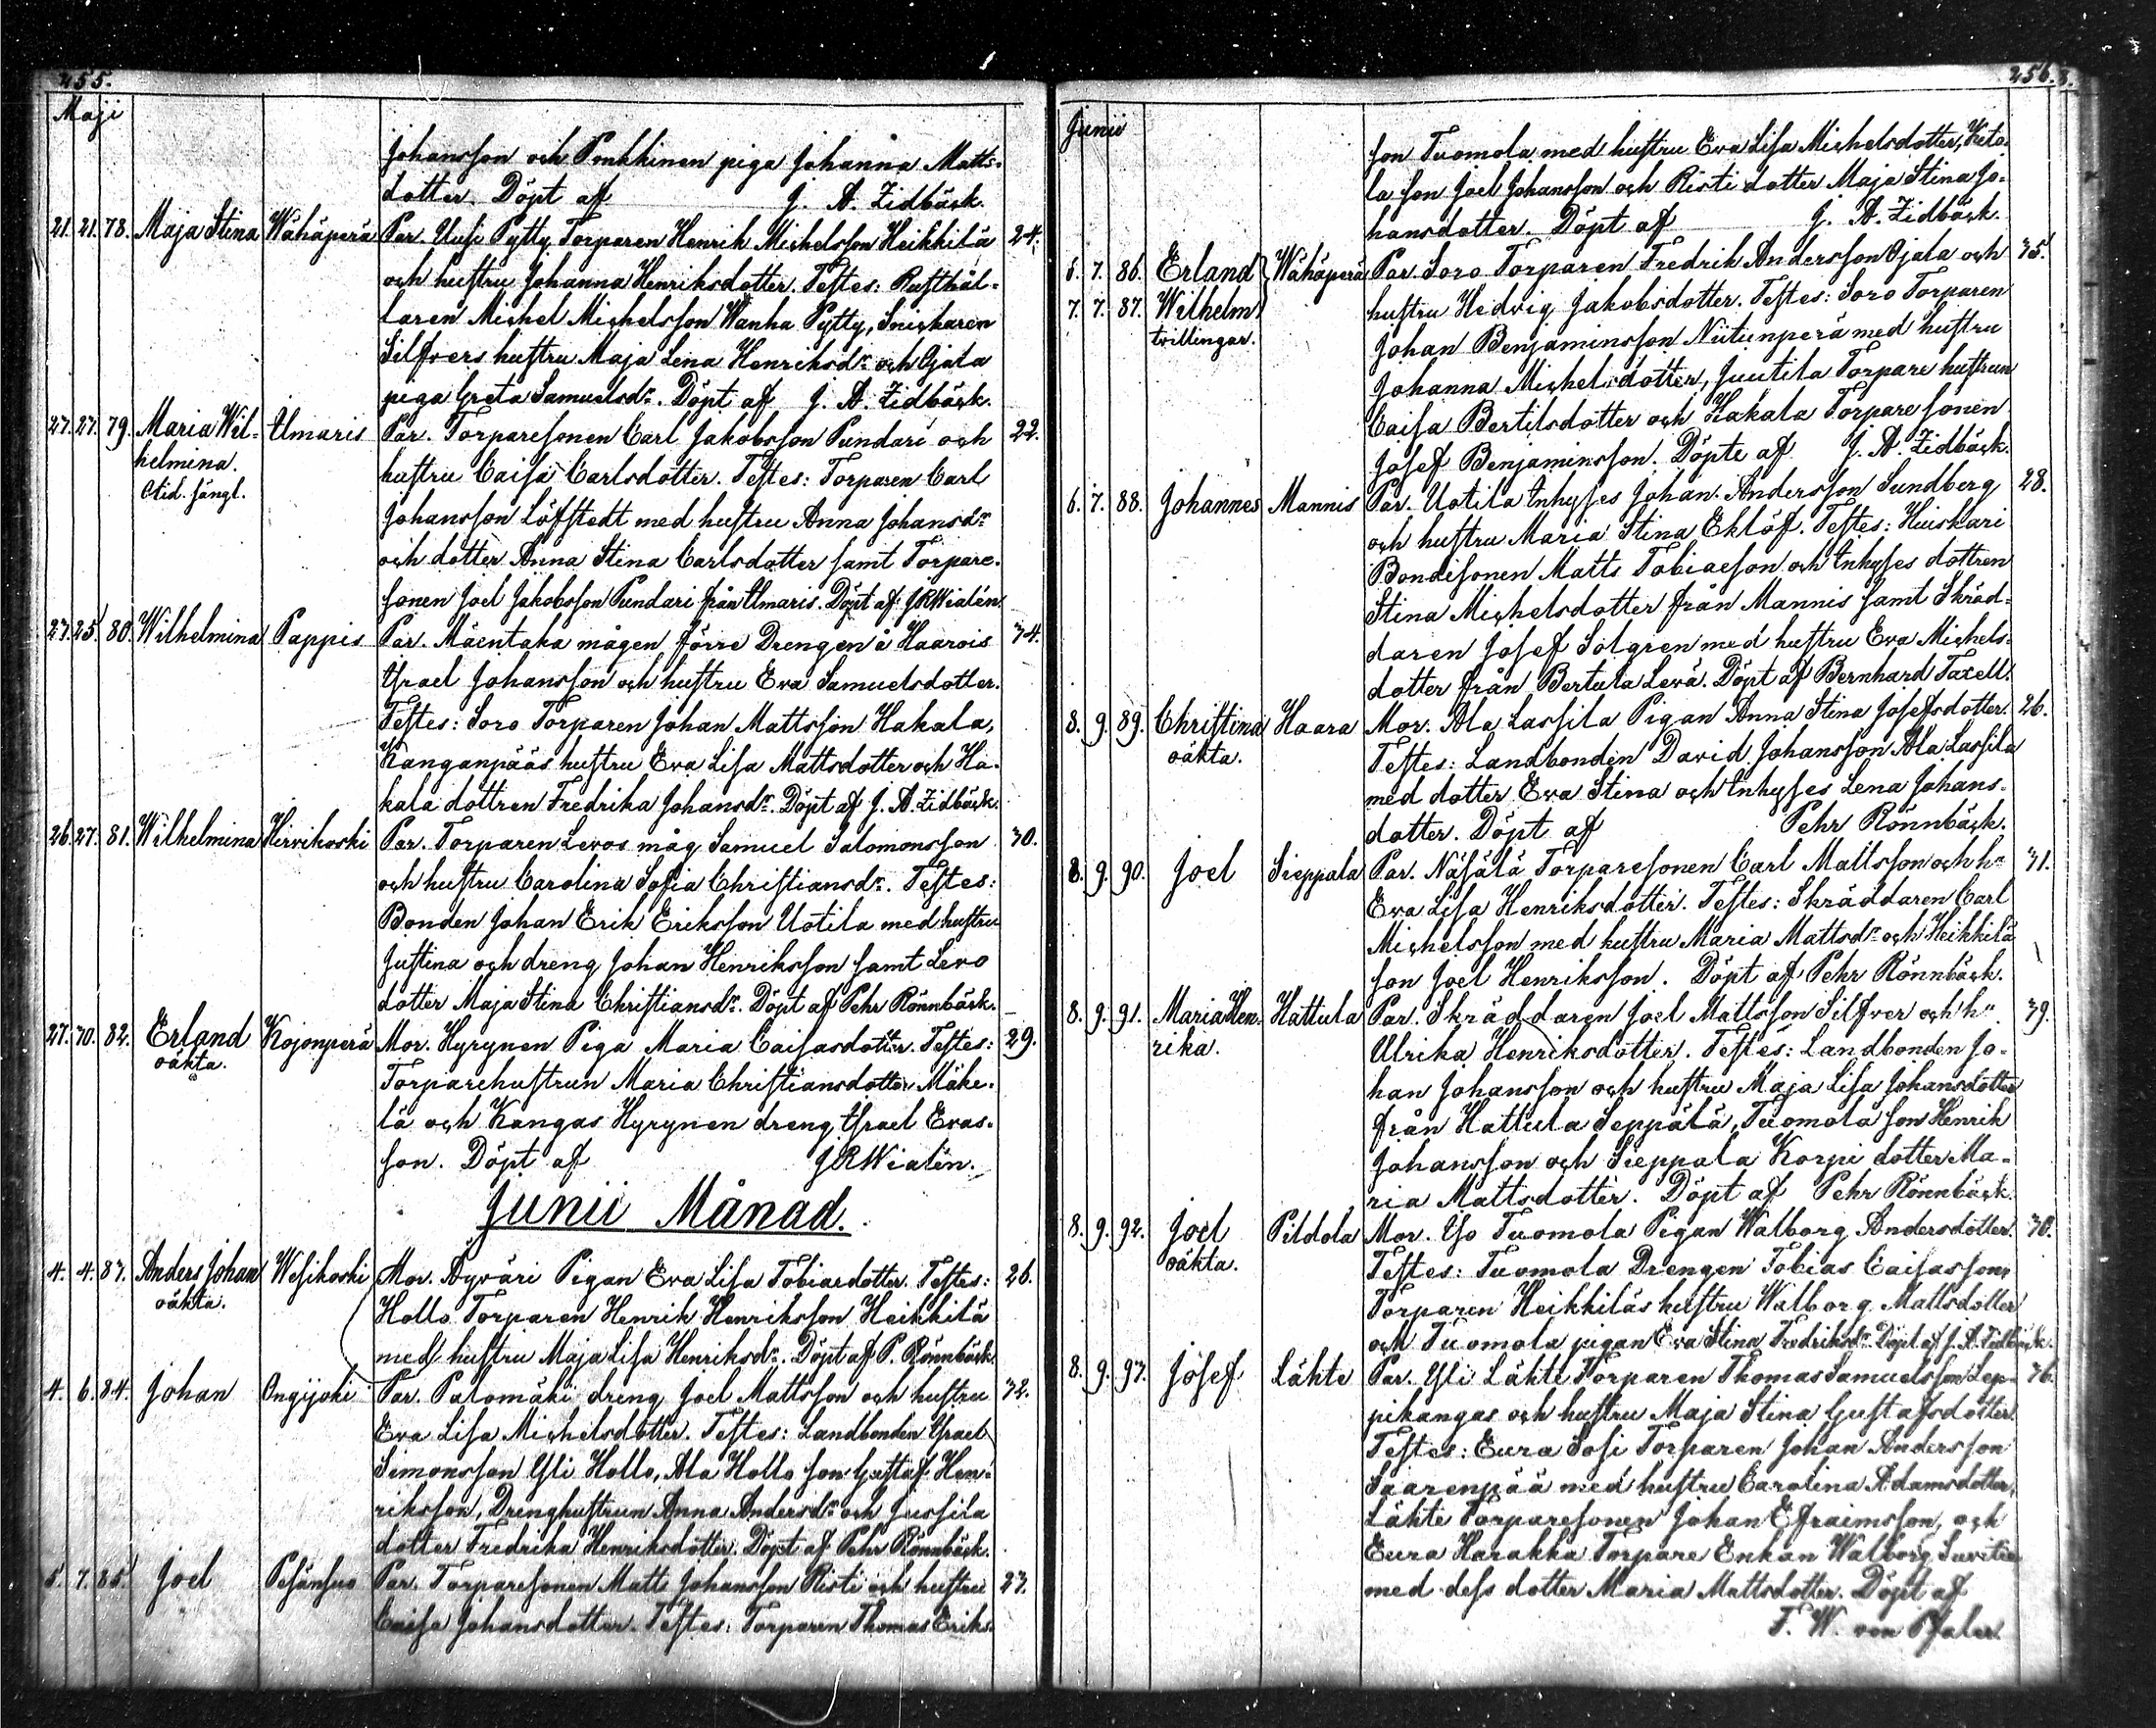 255.
Maji
Johansson och Pmkkinen piga Johanna Matts-
dotter. Döpt af J. A. Zidbäck.
21. 21. 78. Maja Stina Wähäperä Par. Uusi Pytty Torparen Henrik Michelsson Heikkilä 24.
och hustru Johanna Henriksdotter. Testes: Rusthål-
laren Michel Michelsson Wanha Pytty, Snickaren
Silfvers hustru Maja Lena Henriksdr och Ojala
piga Greta Samuelsdr. Döpt af J. A. Zidbäck.
27. 27. 79. Maria Wil- Ulmaris Par. Torparesonen Carl Jakobsson Pundari och 22.
helmina. hustru Caisa Carlsdotter. Testes: Torparen Carl
Johansson Löfstedt med hustru Anna Johansdr
och dotter Anna Stina Carlsdotter samt Torpare-
sonen Joel Jakobsson Pundari från Ulmaris. Döpt af JRWialén.
23. 25. 80. Wilhelmina Pappis Par. Mäentaka mågen, förre Drengen å Haarois 34.
Israel Johansson och hustru Eva Samuelsdotter.
Testes: Soro Torparen Johan Mattsson Hakala,
Kanganpääs hustru Eva Lisa Mattsdotter och Ha-
kala dottren Fredrika Johansdr. Döpt af J. A. Zidbäck.
26. 27. 81. Wilhelmina Hirvikoski Par. Torparen Levos måg Samuel Salomonsson 30.
och hustru Carolina Sofia Christiansdr. Testes:
Bonden Johan Erik Eriksson Uotila med hustru
Justina och dreng Johan Henriksson samt Levo
dotter Maja Stina Christiansdr. Döpt af Pehr Rönnbäck.
27. 30. 82. Erland Kojonperä Mor. Hyrynen Piga Maria Caisasdotter. Testes: 29.
oäkta. Torparehustrun Maria Christiansdotter Mäke-
lä och Kangas Hyrynen dreng Israel Evas-
son. Döpt af JRWialén.
Junii Månad.
4. 4. 83. Anders Johan Wesikoski Mor. Äyräri Pigan Eva Lisa Tobiaedotter. Testes: 26.
oäkta. Hollo Torparen Henrik Henriksson Heikkilä
med hustru Maja Lisa Henriksdr. Döpt af P. Rönnbäck.
4. 6. 84. Johan Ongijoki Par. Palomäki dreng Joel Mattsson och hustru 32.
Eva Lisa Michelsdotter. Testes: Landbonden Israel
Simonsson Yli Hollo, Ala Hollo son Gustaf Hen-
riksson, Drenghustrun Anna Andersdr och Jussila
dotter Fredrika Henriksdotter. Döpt af Pehr Rönnbäck.
5. 7. 85. Joel Pesänsuo Par. Torparesonen Matts Johansson Risti och hustru 23.
Caisa Johansdotter. Testes: Torparen Thomas Eriks-
256.
Junii
son Tuomola med hustru Eva Lisa Michelsdotter, Keto-
la son Joel Johansson och Risti dotter Maja Stina Jo-
hansdotter. Döpt af J. A. Zidbäck.
6. 7. 86. Erland Wähäperä Par. Soro Torparen Fredrik Andersson Ojala och 35.
7. 7. 87. Wilhelm hustru Hedvig Jakobsdotter. Testes: Soro Torparen
tvillingar. Johan Benjaminsson Niitunperä med hustru
Johanna Michelsdotter, Juutila Torpare hustrun
Caisa Bertilsdotter och Hakala Torpare sonen
Josef Benjaminsson. Döpte af J. A. Zidbäck.
6. 7. 88. Johannes Mannis Par. Uotila Inhyses Johan Andersson Sundberg 28.
och hustru Maria Stina Eklöf. Testes: Huiskari
Bondesonen Matts Tobiaeson och Inhyses dottren
Stina Michelsdotter från Mannis samt Skräd-
daren Josef Solgren med hustru Eva Michels-
dotter från Bertula Levä. Döpt af Bernhard Taxell.
8. 9. 89. Christina Haara Mor. Ala Lassila Pigan Anna Stina Josefsdotter. 26.
oäkta. Testes: Landbonden David Johansson Ala Lassila
med dotter Eva Stina och Inhyses Lena Johans-
dotter. Döpt af Pehr Rönnbäck.
8. 9. 90. Joel Sieppala Par. Näsälä Torparesonen Carl Mattsson och hu 31.
Eva Lisa Henriksdotter. Testes: Skräddaren Carl
Michelsson med hustru Maria Mattsdr och Heikkilä
son Joel Henriksson. Döpt af Pehr Rönnbäck.
8. 9. 91. Maria Hen- Hattula Par. Skräddaren Joel Mattsson Silfver och hu 39.
rika. Ulrika Henriksdotter. Testes: Landbonden Jo-
han Johansson och hustru Maja Lisa Johansdotter
från Hattula Seppälä, Tuomola son Henrik
Johansson och Sieppala Korpi dotter Ma-
ria Mattsdotter. Döpt af Pehr Rönnbäck.
8. 9. 92. Joel Pildola Mor. Iso Tuomola Pigan Walborg Andersdotter. 30.
oäkta. Testes: Tuomola Drengen Tobias Caisasson,
Torparen Heikkiläs hustru Walborg Mattsdotter
och Tuomola pigan Eva Stina Fredriksdr. Döpt af J. A. Zidbäck.
8. 9. 93. Josef Lähte Par. Yli Lähte Torparen Thomas Samuelsson Lep- 36.
pikangas och hustru Maja Stina Gustafsdotter.
Testes: Eura Sosi Torparen Johan Andersson
Saarenpää med hustru Carolina Adamsdotter,
Lähte Torparesonen Johan Efraimsson, och
Eura Harakka Torpare Enkan Walborg
med dess dotter Maria Mattsdotter. Döpt af
T. W. von Pfaler.